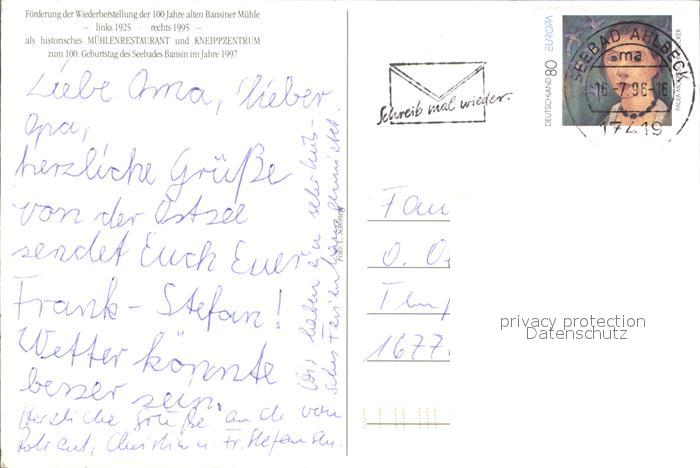 Förderung der Wiederherstellung der 100 Jahre alten Bansiner Mühle
– links 1925 · rechts 1995 –
als historisches MÜHLENRESTAURANT und KNEIPPZENTRUM
zum 100. Geburtstag des Seebades Bansin im Jahre 1997
Liebe Oma, lieber
Opa,
herzliche Grüße
von der Ostsee
sendet Euch Euer
Frank-Stefan!
Wetter könnte
besser sein.
Herzliche Grüße auch von
Christin u. Fr. Stefan
Wir haben ein sehr hüb-
sches Ferienhaus gemietet.
Schreib mal wieder.
DEUTSCHLAND 80 EUROPA
SEEBAD AHLBECK
ma
-7.96-16
17419
Fam
O. O
1677
privacy protection
Datenschutz